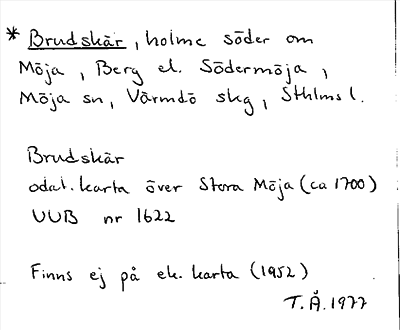 * Brudskär, holme söder om
Möja, Berg el. Södermöja,
Möja sn, Värmdö skg, Sthlms l.
Brudskär
odat. karta över Stora Möja (ca 1700)
UUB nr 1622
Finns ej på ek. karta (1952)
T.Å. 1977